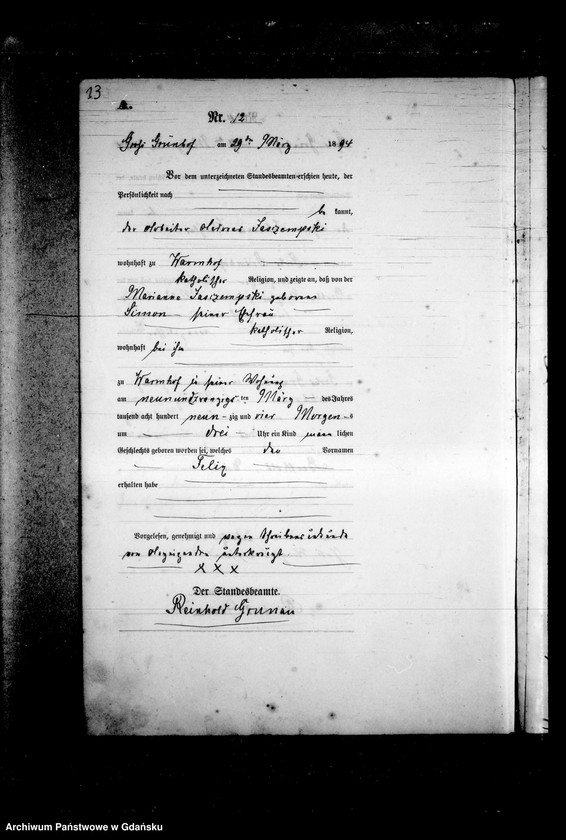 23
A.
Nr. 12
Groß Grünhof am 29ten März 1894
Vor dem unterzeichneten Standesbeamten erschien heute, der
Persönlichkeit nach
be kannt,
der Arbeiter Jaszempski
wohnhaft zu Warmhof
katholischer Religion, und zeigte an, daß von der
Marianna Jaszempski geborene
Simon seiner Ehefrau
katholischer Religion,
wohnhaft bei ihm
zu Warmhof in seiner Wohnung
am neunundzwanzigsten ten März des Jahres
tausend acht hundert neun zig und vier Morgens
um drei Uhr ein Kind männ lichen
Geschlechts geboren worden sei, welches den Vornamen
Felix
erhalten habe
Vorgelesen, genehmigt und wegen Schreibensunkunde
vom Anzeigenden unterkreuzt
x x x
Der Standesbeamte.
Reinhold Grunau
Archiwum Państwowe w Gdańsku